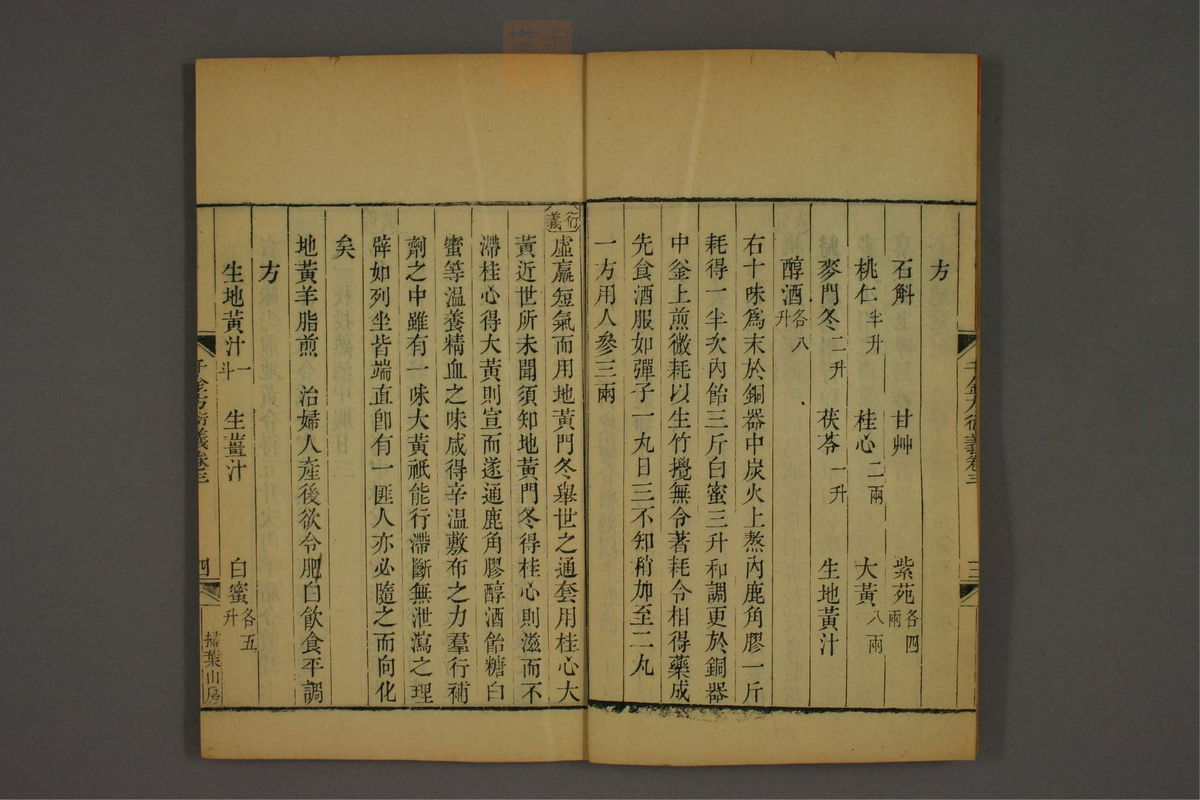 方
石斛　甘艸　紫菀各四兩
桃仁半升　桂心二兩　大黃八兩
麥門冬二升　茯苓一升　生地黃汁
醇酒各八升
右十味爲末於銅器中炭火上熬內鹿角膠一斤
耗得一半次內飴三斤白蜜三升和調更於銅器
中釜上煎微耗以生竹攪無令著耗令相得藥成
先食酒服如彈子一丸日三不知稍加至二丸
一方用人參三兩
千金方衍義卷三
三
衍義
虛羸短氣而用地黃門冬舉世之通套用桂心大
黃近世所未聞須知地黃門冬得桂心則滋而不
滯桂心得大黃則宣而遂通鹿角膠醇酒飴糖白
蜜等溫養精血之味咸得辛溫敷布之力羣行補
劑之中雖有一味大黃祇能行滯斷無泄瀉之理
辟如列坐皆端直卽有一匪人亦必隨之而向化
矣
地黃羊脂煎　治婦人產後欲令肥白飲食平調
方
生地黃汁一斗　生薑汁　白蜜各五升
千金方衍義卷三
四
掃葉山房